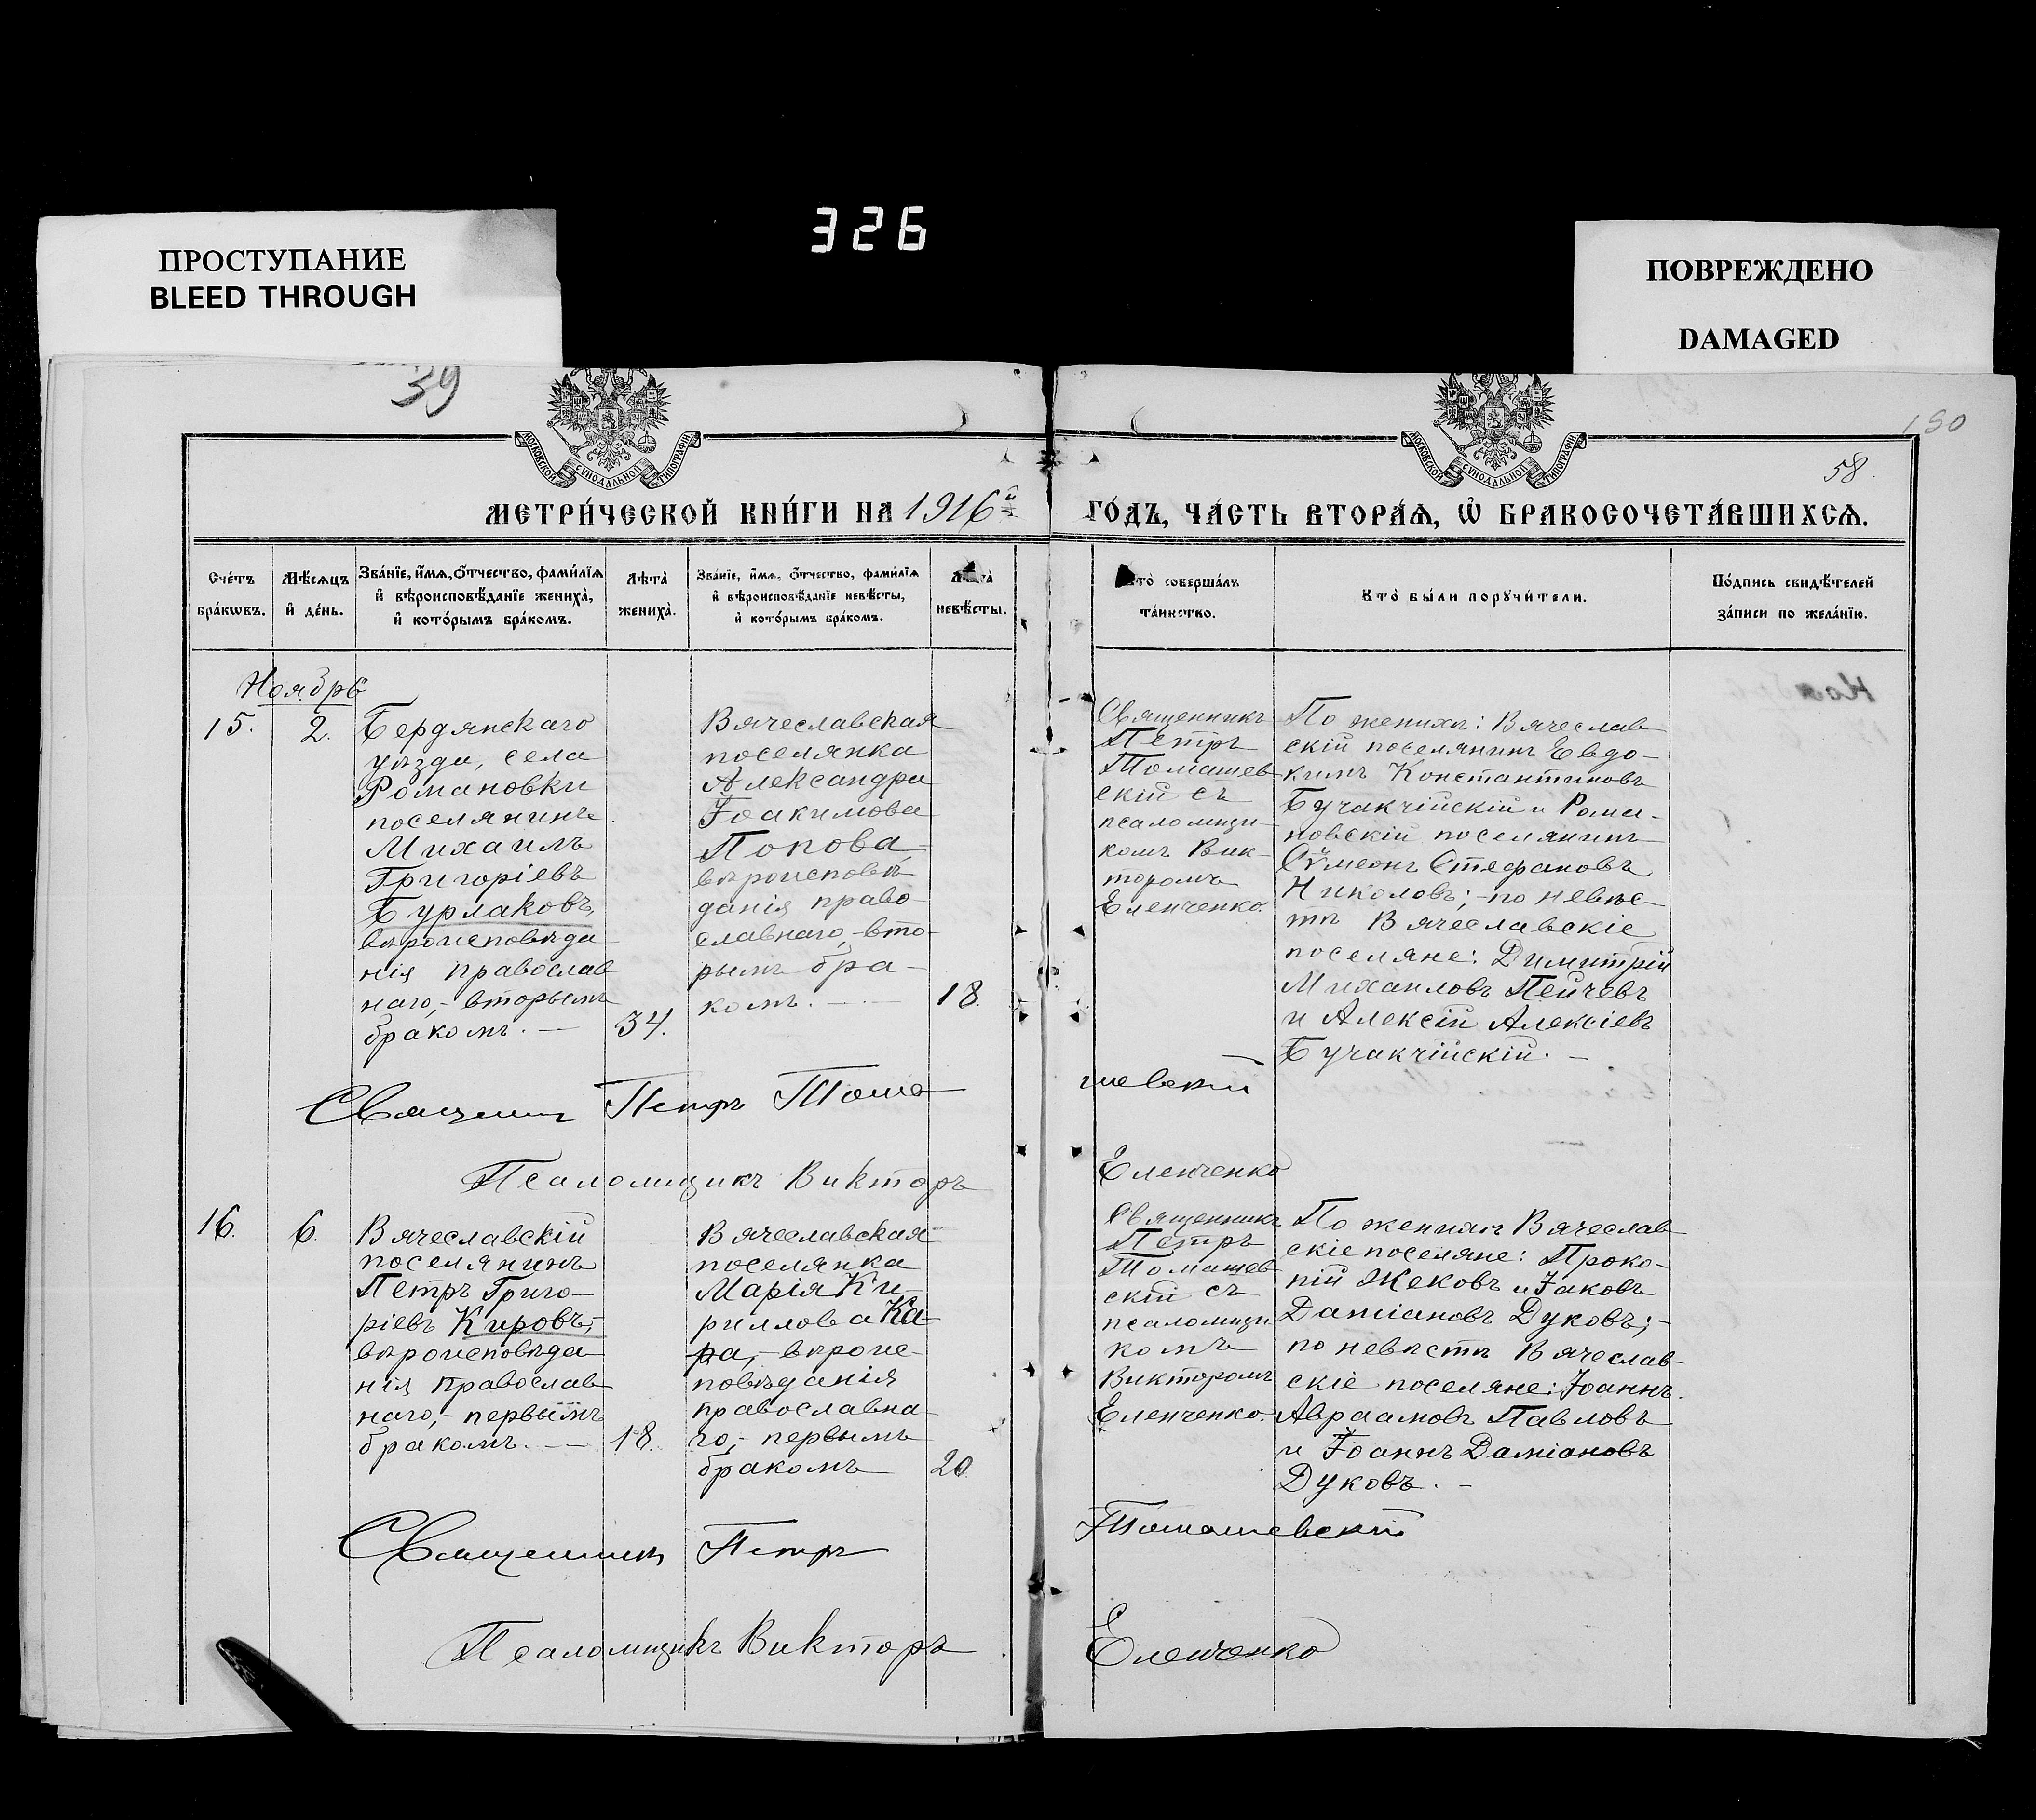 326
ПРОСТУПАНИЕ
BLEED THROUGH
ПОВРЕЖДЕНО
DAMAGED
39
150
58.
МОСКОВСКОЙ СѴНОДАЛЬНОЙ ТИПОГРАФІИ
МОСКОВСКОЙ СѴНОДАЛЬНОЙ ТИПОГРАФІИ
МЕТРИ́ЧЕСКОЙ КНИ́ГИ НА 1916й
ГО́ДЪ, ЧА́СТЬ ВТОРА́Ѧ, Ѽ БРАКОСОЧЕТА́ВШИХСѦ.
Сче́тъ
бра́кѡвъ.
Мѣ́сѧцъ
и҆ де́нь.
Зва́нїе, и҆́мѧ, ѻ҆́тчество, фами́лїѧ
и҆ вѣроисповѣ́данїе жениха̀,
и҆ кото́рымъ бра́комъ.
Лѣ́та
жениха̀.
Зва́нїе, и҆́мѧ, ѻ҆́тчество, фами́лїѧ
и҆ вѣроисповѣ́данїе невѣ́сты,
и҆ кото́рымъ бра́комъ.
Лѣ́та
невѣ́сты.
Кто̀ соверша́лъ
та́инство.
Кто̀ бы́ли порꙋчи́тели.
По́дпись свидѣ́телей
за́писи по жела́нїю.
Ноябрь
15.
2.
Бердянскаго
уѣзда, села
Романовки
поселянинъ
Михаилъ
Григоріевъ
Бурлаковъ,
вѣроисповѣда
нія православ
наго,- вторымъ
бракомъ. —
34.
Вячеславская
поселянка
Александра
Іоакимова
Попова
вѣроисповѣ
данія право-
славнаго,- вто-
рымъ бра-
комъ. —
18.
Священникъ
Петръ
Томашев
скій съ
псаломщи-
комъ Вик-
торомъ
Еленченко.
По женихѣ: Вячеслав
скій поселянинъ Евдо-
кимъ Константиновъ
Бучакчійскій и Рома-
новскій поселянинъ
Сѵмеонъ Стефановъ
Николовъ; -по невѣс-
тѣ Вячеславскіе
поселяне: Димитрій
Михаиловъ Пейчевъ
и Алексій Алексіевъ
Бучакчійскій. —
Священник Петръ Тома
шевскій
Псаломщикъ Викторъ
Еленченко
16.
6.
Вячеславскій
поселянинъ
Петръ Григо-
ріевъ Кировъ,-
вѣроисповѣда
нія православ
наго,- первымъ
бракомъ. —
18.
Вячеславская
поселянка
Марія Ки-
риллова Ка-
ра,- вѣроис-
повѣданія
православна-
го,- первымъ
бракомъ
20.
Священникъ
Петръ
Томашев
скій съ
псаломщи
комъ
Викторомъ
Еленченко.
По женихѣ Вячеслав
скіе поселяне: Проко-
пій Жековъ и Іаковъ
Даміановъ Дуковъ; -
по невѣстѣ Вячеслав-
скіе поселяне: Іоаннъ
Авраамовъ Павловъ
и Іоаннъ Даміановъ
Дуковъ. -
Священникъ Петръ
Томашевскій
Псаломщикъ Викторъ
Еленченко